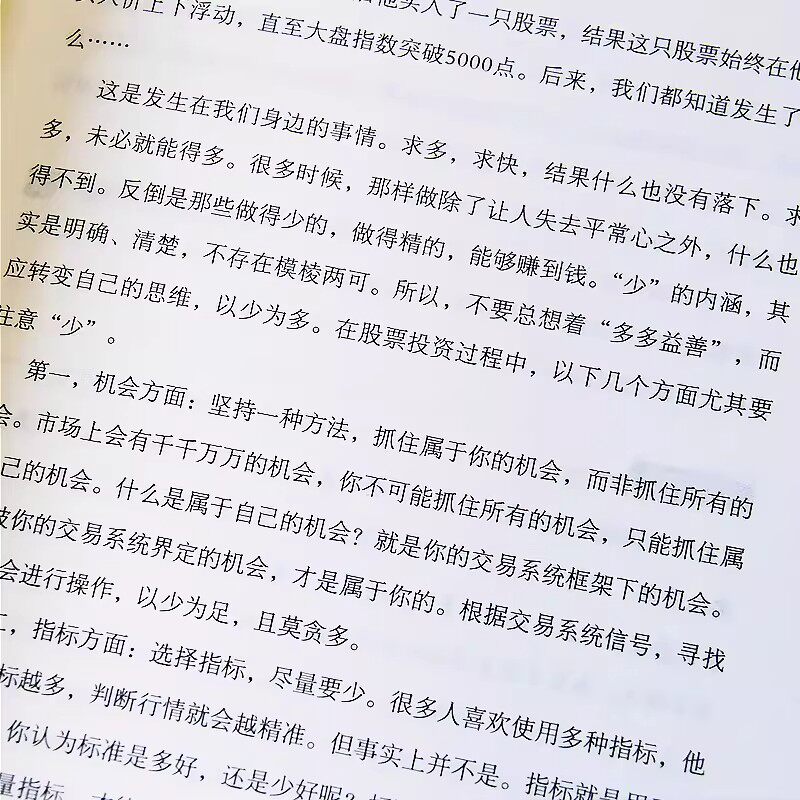 买入价上下浮动，直至大盘指数突破5000点。后来，我们都知道发生了
他买入了一只股票，结果这只股票始终在他
么……
这是发生在我们身边的事情。求多，求快，结果什么也没有落下。求
多，未必就能得多。很多时候，那样做除了让人失去平常心之外，什么也
得不到。反倒是那些做得少的，做得精的，能够赚到钱。“少”的内涵，其
实是明确、清楚，不存在模棱两可。所以，不要总想着“多多益善”，而
应转变自己的思维，以少为多。在股票投资过程中，以下几个方面尤其要
注意“少”。
第一，机会方面：坚持一种方法，抓住属于你的机会，而非抓住所有的
会。市场上会有千千万万的机会，你不可能抓住所有的机会，只能抓住属
己的机会。什么是属于自己的机会？就是你的交易系统框架下的机会。
被你的交易系统界定的机会，才是属于你的。根据交易系统信号，寻找
会进行操作，以少为足，且莫贪多。
二，指标方面：选择指标，尽量要少。很多人喜欢使用多种指标，他
标越多，判断行情就会越精准。但事实上并不是。指标就是用
你认为标准是多好，还是少好呢？
量指标，